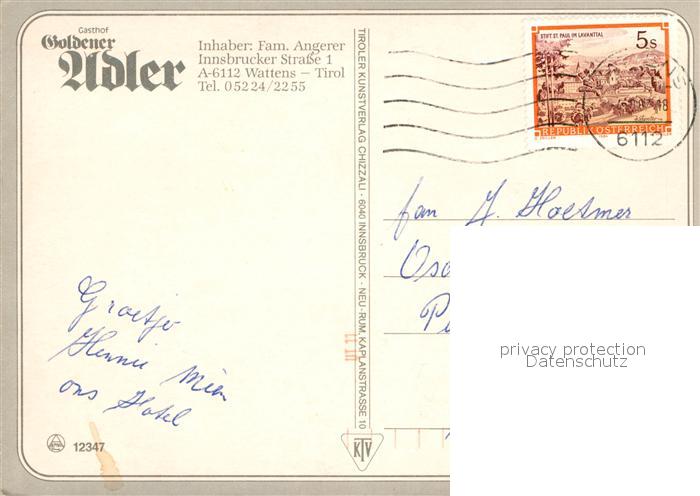 Gasthof
Goldener
Adler
Inhaber: Fam. Angerer
Innsbrucker Straße 1
A-6112 Wattens – Tirol
Tel. 05224/2255
TIROLER KUNSTVERLAG CHIZZALI · 6040 INNSBRUCK - NEU-RUM, KAPLANSTRASSE 10
STIFT ST. PAUL IM LAVANTTAL
5 S
REPUBLIK ÖSTERREICH
6112
fam
Groetjes
Hennie Mien
ons Hotel
privacy protection
Datenschutz
12347
KTV